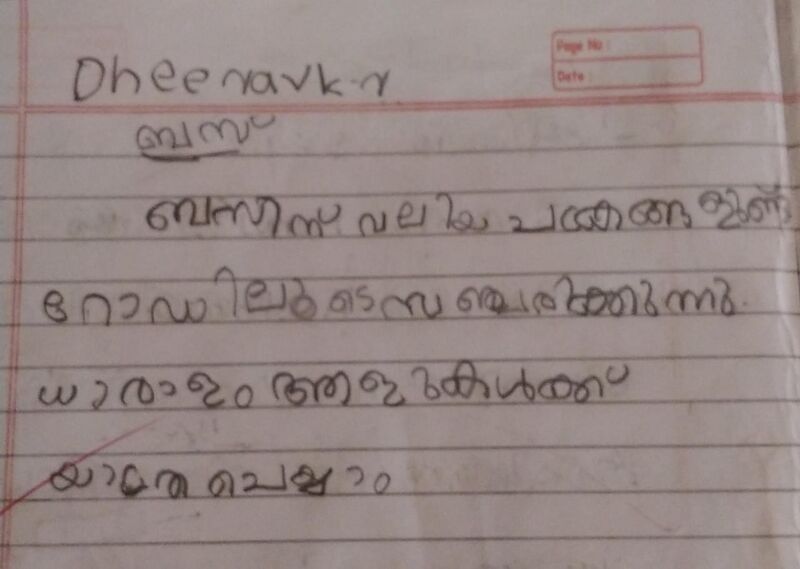 Page No :
Date :
Dheeravk.r
ബസ്
ബസിന് വലിയ ചക്രങ്ങളുണ്ട്
റോഡിലൂടെ സഞ്ചരിക്കുന്നു.
ധാരാളം ആളുകൾക്ക്
യാത്ര ചെയ്യാം